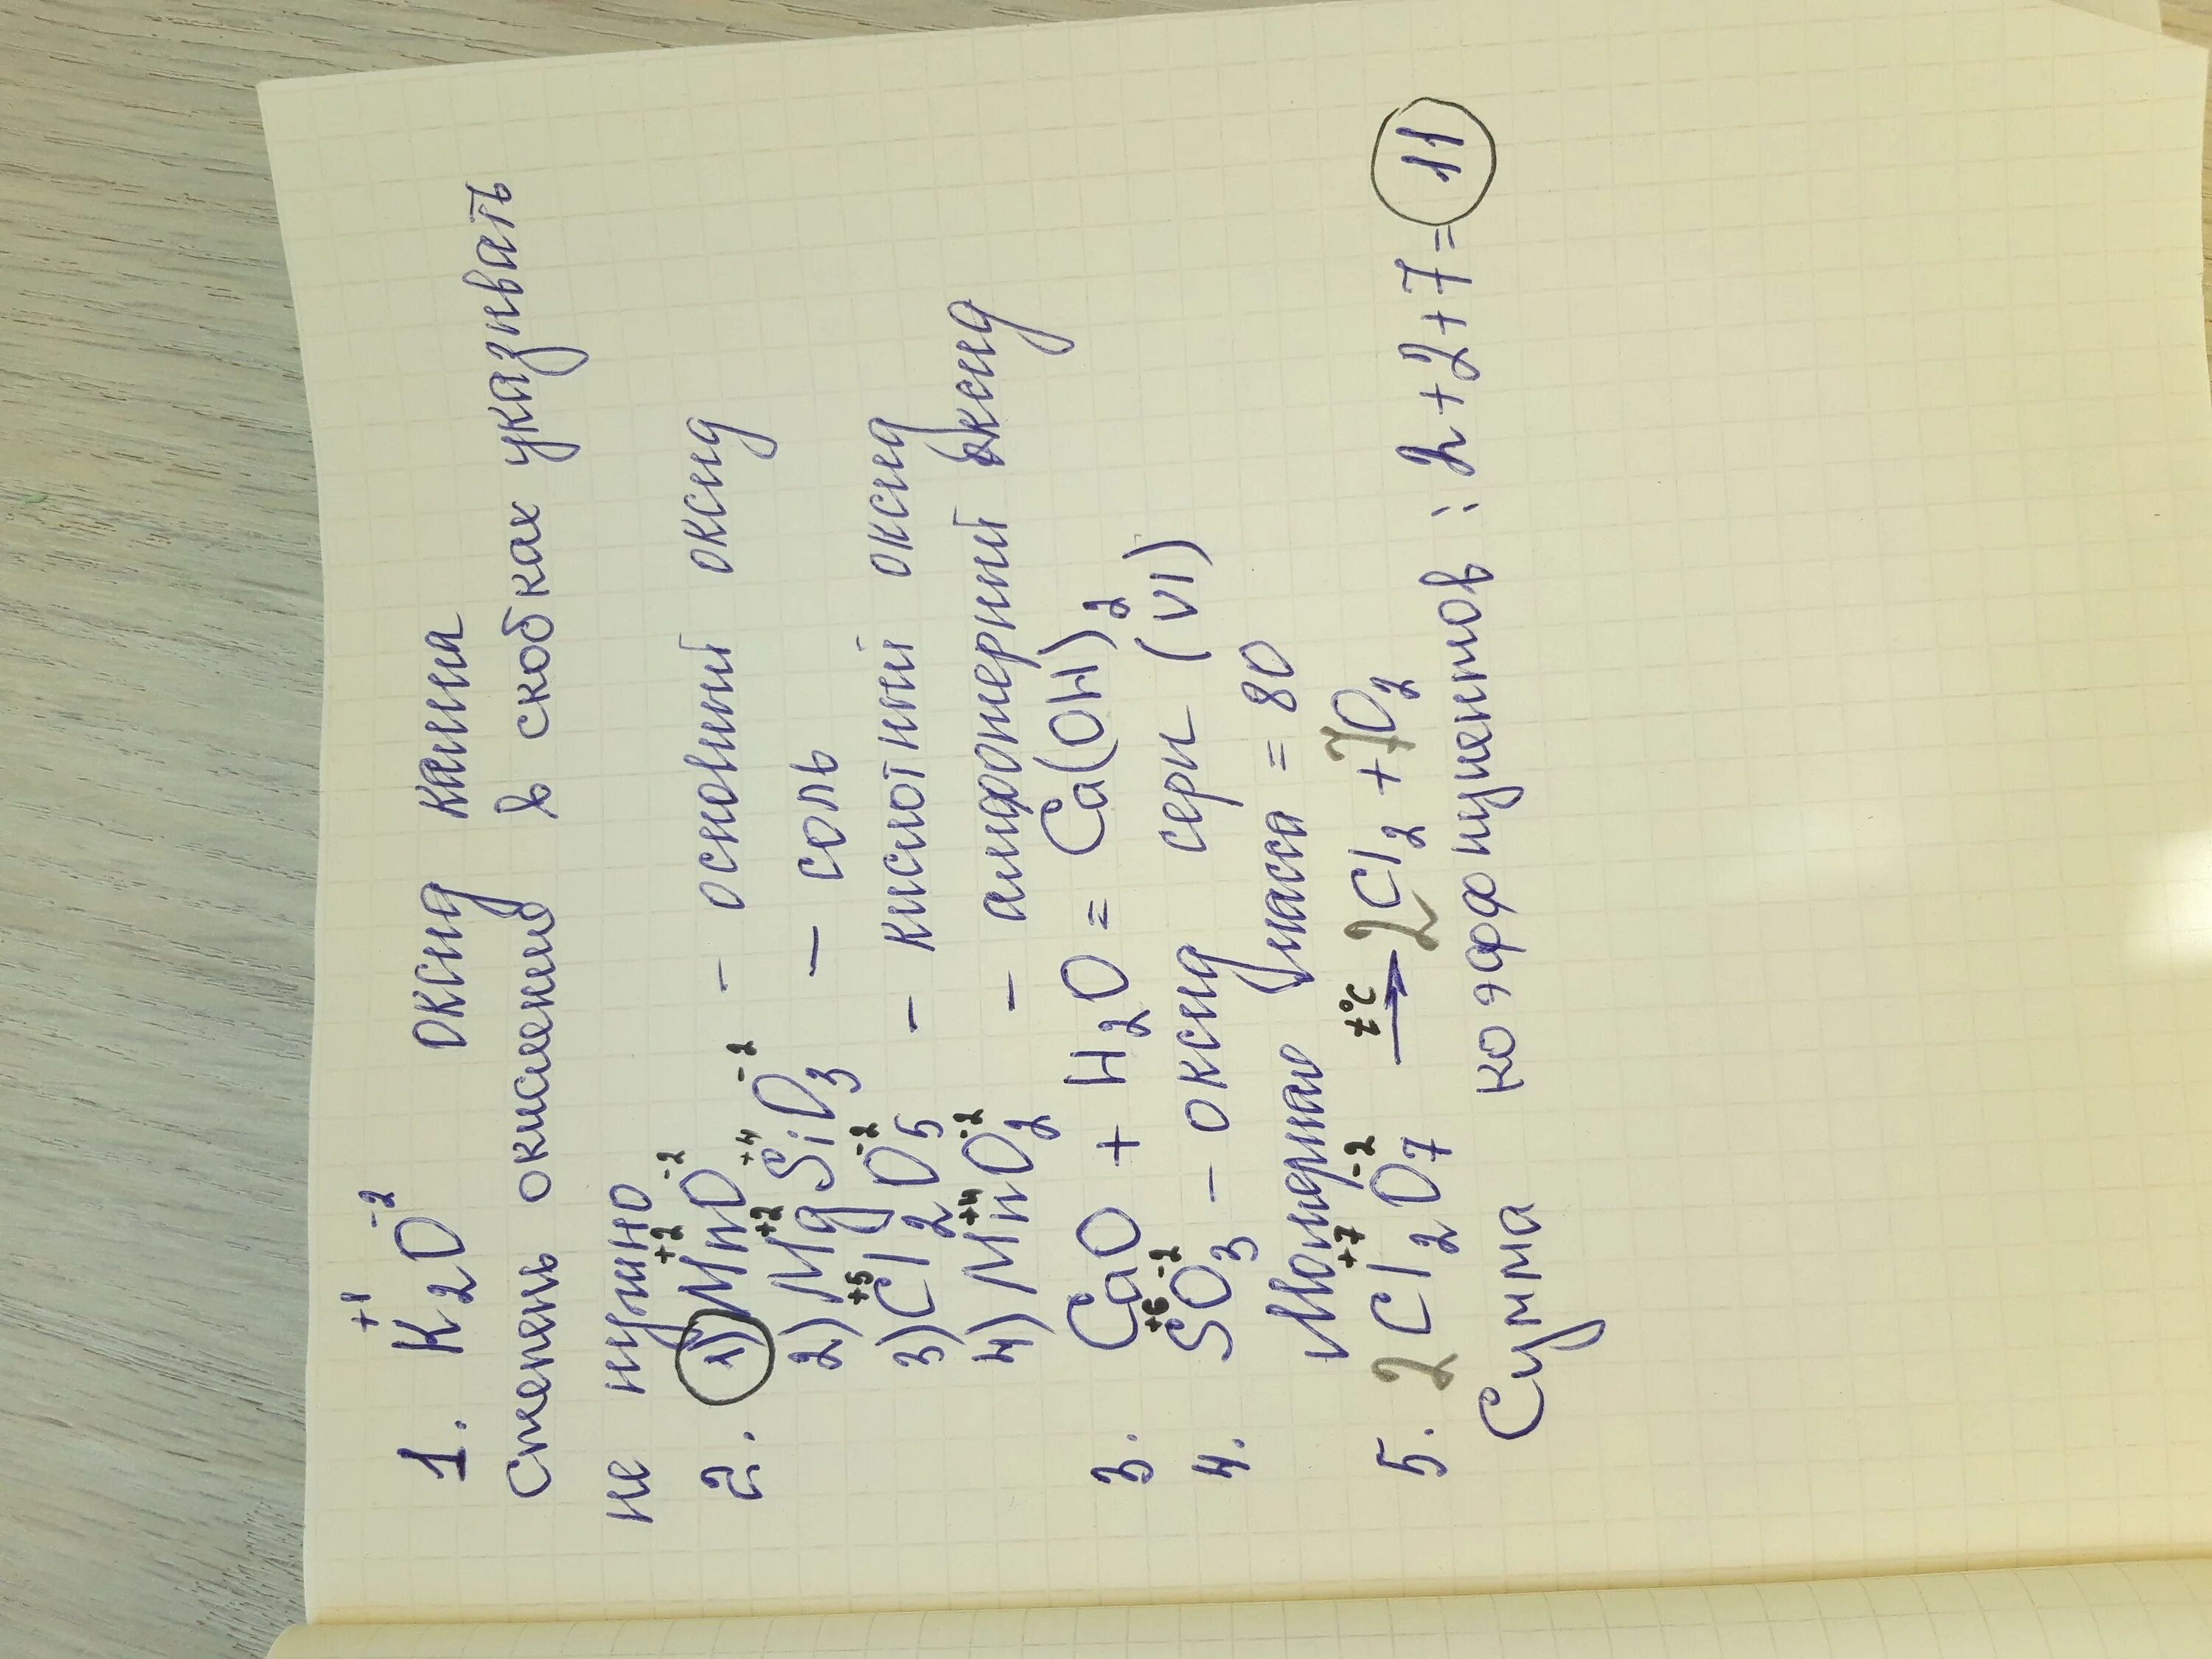 1. K₂⁺¹O⁻² оксид калия
Степень окисления в скобках указывать
не нужно
2. 1) Mn⁺²O⁻² - основный оксид
2) Mg⁺²Si⁺⁴O₃⁻² - соль
3) Cl₂⁺⁵O₅⁻² - кислотный оксид
4) Mn⁺⁴O₂⁻² - амфотерный оксид
3. CaO + H₂O = Ca(OH)₂
4. S⁺⁶O₃⁻² - оксид серы (VI)
Молярная масса = 80
5. 2Cl₂⁺⁷O₇⁻² —t°C→ 2Cl₂ + 7O₂
Сумма коэффициентов: 2+2+7=11